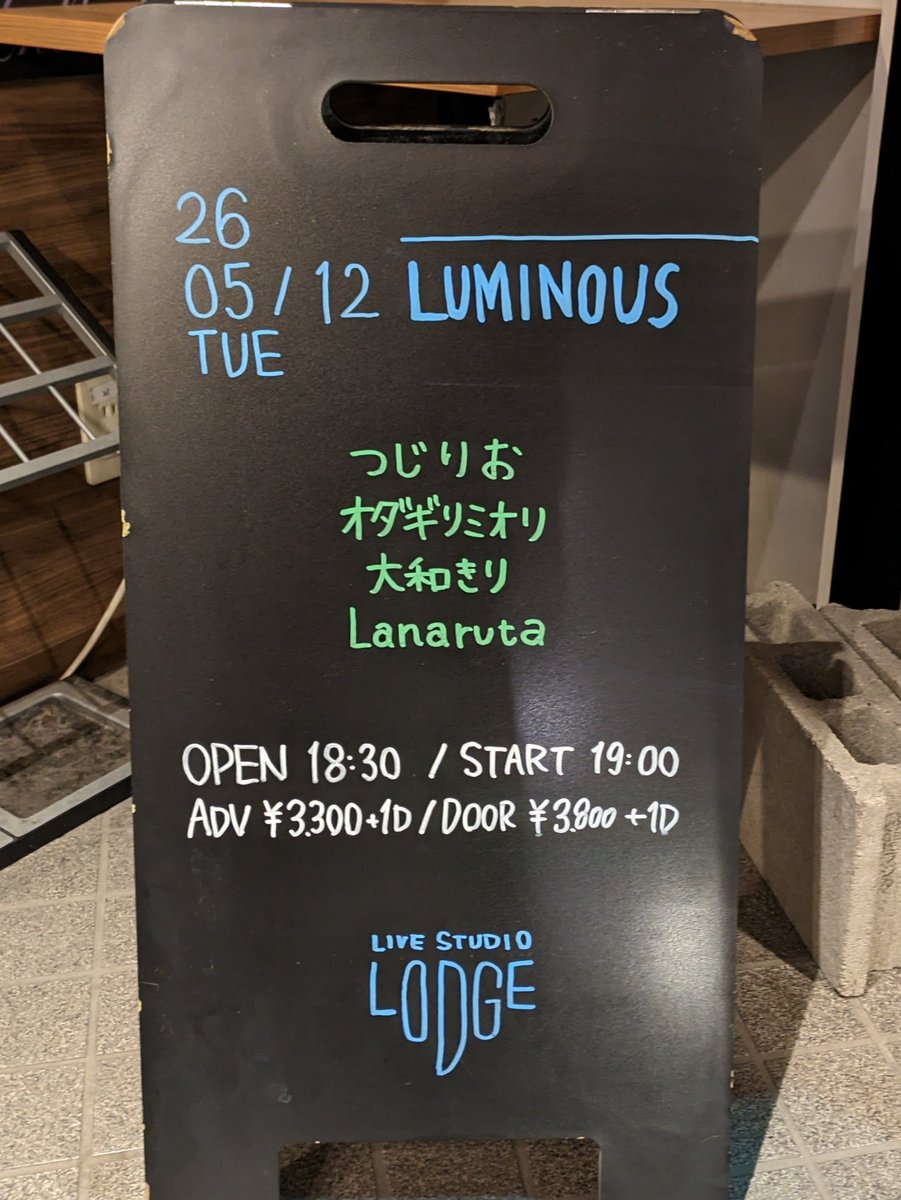 26
05/12 LUMINOUS
TUE
つじりお
オダギリミオリ
大和きり
Lanaruta
OPEN 18:30 / START 19:00
ADV ¥3.300+1D / DOOR ¥3.800+1D
LIVE STUDIO
LODGE